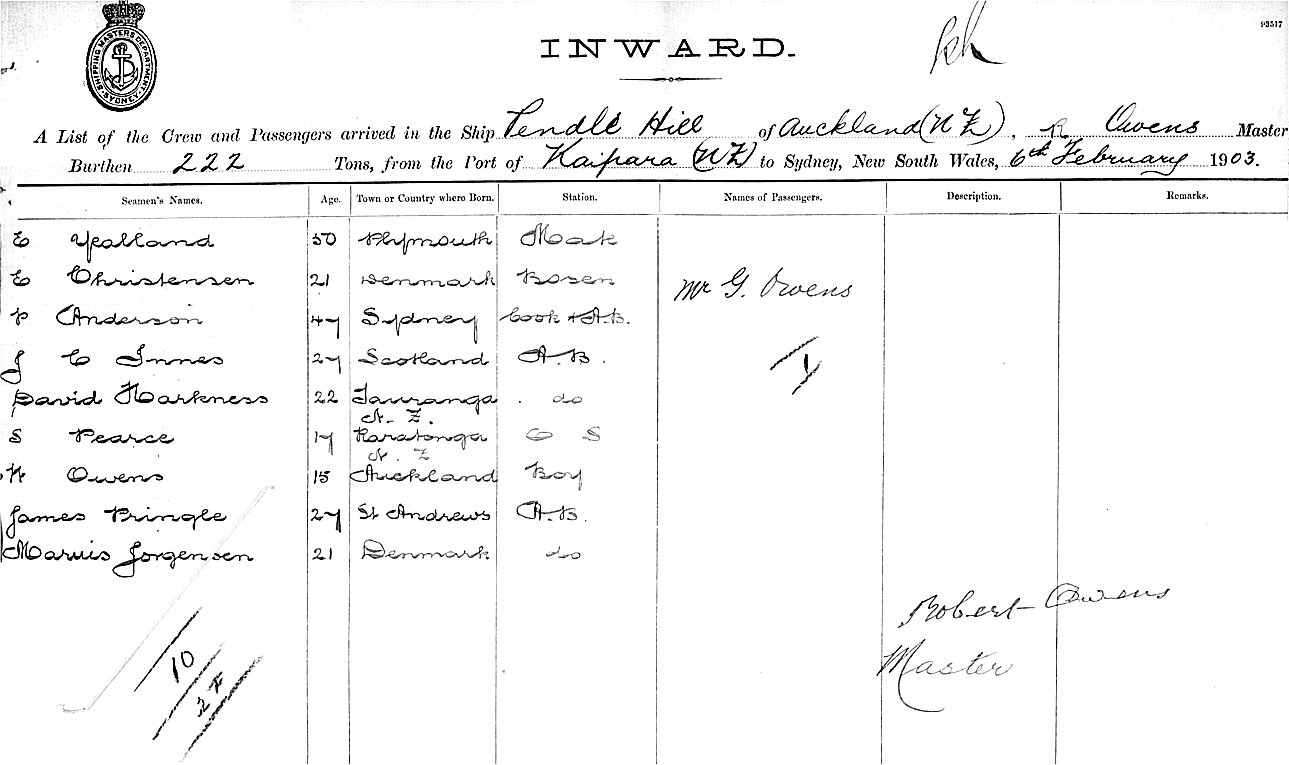 SHIPPING MASTERS DEPARTMENT SYDNEY
93517
INWARD.
A List of the Crew and Passengers arrived in the Ship Pendle Hill of Auckland (N Z), R Owens Master
Burthen 222 Tons, from the Port of Kaipara (NZ) to Sydney, New South Wales, 6th February 1903.
Seamen's Names. Age. Town or Country where Born. Station. Names of Passengers. Description. Remarks.
E Yealland 50 Plymouth Mate
E Christensen 21 Denmark Bosen
Mr G. Owens
P Anderson 47 Sydney Cook & A.B.
J C Innes 27 Scotland A.B.
David Harkness 22 Tauranga N.Z. do
S Pearce 17 Raratonga N.Z. O S
Owens 15 Auckland Boy
James Pringle 27 St Andrews A.B.
Marius Jorgensen 21 Denmark do
Robert Owens
Master
10